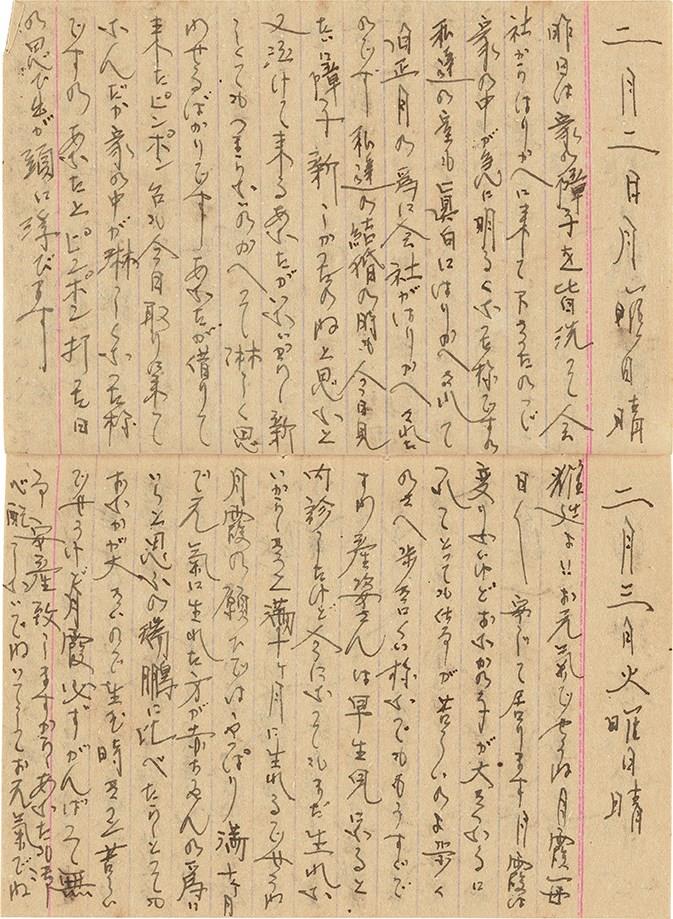 二月二日月曜日晴
昨日は家の障子を皆洗って会
社からはりかへに来て下さったので
家の中が急に明るくなった様ですの
私達の室も真白にはりかへされて
旧正月の為に会社がはりかへされた
のです 私達の結婚の時も今日見
たいに障子新しかったのねと思ふと
又泣けて来る あなたがいないから新
とってもつまらないのかへって淋しく思
わせるばかりです あなたが借りて
来たピンポン台も今日取りに来て
なんだか家の中が淋しくなった様
ですの あなたとピンポン打った日
の思ひ出が頭に浮びます
二月三日火曜日晴
雄進よ!!お元気でせうね 月霞毎
日々案じて居ります 月霞は
変りないけどおなかの子が大きくなるに
つれてとっても体が苦しいのよ 歩く
のさへ歩きにくい様なでももうすぐで
すわ 産婆さんは早生児になると
内診したけど今になってもまだ生れな
いからきっと満十ヶ月に生れるでせうね
月霞の願ではやっぱり満十ヶ月
で元気に生れた方が赤ちゃんの為に
いゝと思ふの 瑞鵬に比べたらとっても
おなかが大きいので生む時きっと苦しい
でせうけど月霞必ずがんばって無
事安産致しますからあなたも御
心配しないでねいてらしてお元気でね